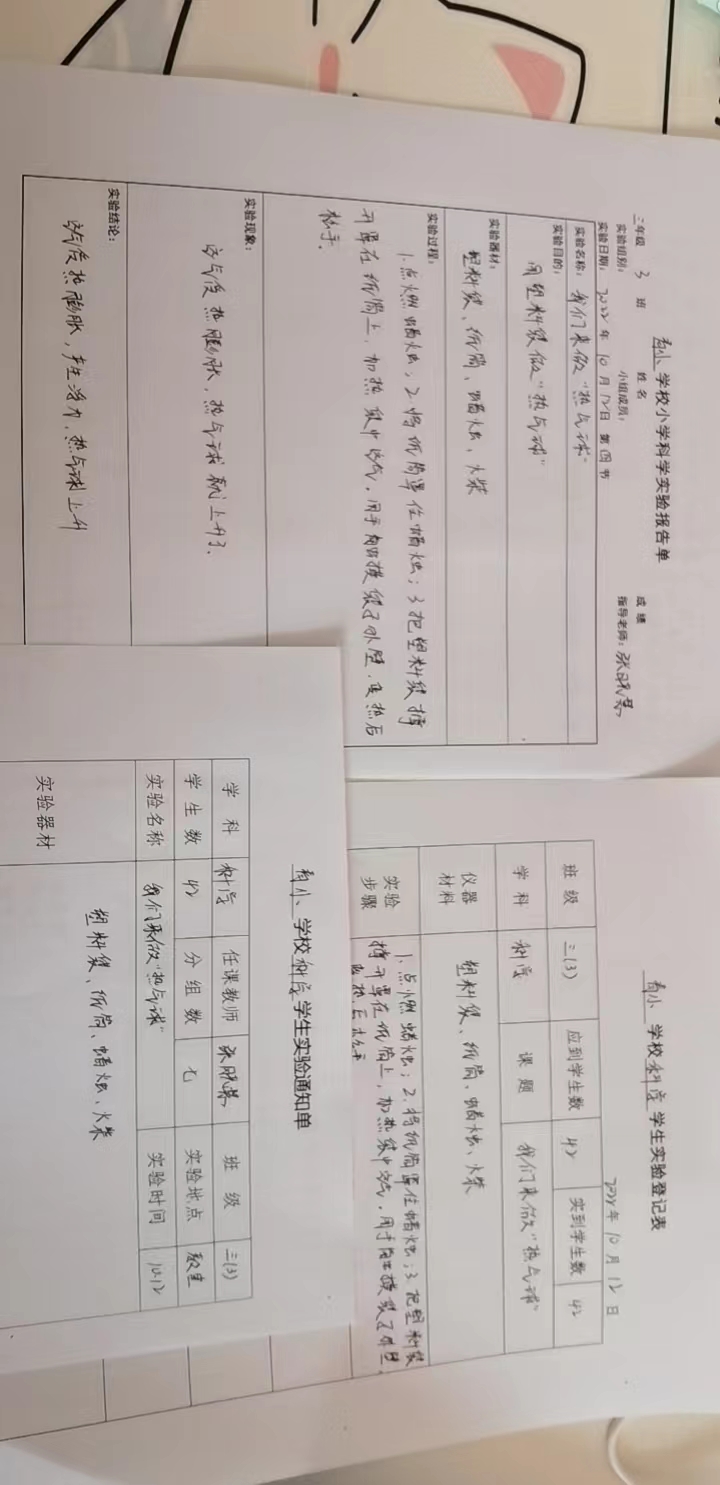 南小学校小学科学实验报告单
三年级 3 班 姓名 成绩
实验组别： 小组成员： 指导老师：张晓慕
实验日期：2022年10月12日 第四节
实验名称：我们来做“热气球”
实验目的：
用塑料袋做“热气球”
实验器材：
塑料袋、纸筒、蜡烛、火柴
实验过程：
1.点燃蜡烛；2.将纸筒罩住蜡烛；3把塑料袋撑
开罩在纸筒上，加热袋中空气，用手触摸袋子外壁，变热后
松手。
实验现象：
空气受热膨胀、热气球就上升了.
实验结论：
空气受热膨胀，产生浮力，热气球上升
南小 学校科学学生实验登记表
2022年10月12日
班级 三(3) 应到学生数 42 实到学生数 42
学科 科学 课题 我们来做“热气球”
仪器材料 塑料袋、纸筒、蜡烛、火柴
实验步骤 1.点燃蜡烛；2.将纸筒罩住蜡烛；3.把塑料袋
撑开罩在纸筒上，加热袋中空气，用手触摸袋子外壁，
变热后松手
南小 学校科学学生实验通知单
学科 科学 任课教师 班级 三(3)
学生数 42 分组数 七 实验地点 教室
实验名称 我们来做“热气球” 实验时间 10.12
实验器材 塑料袋、纸筒、蜡烛、火柴